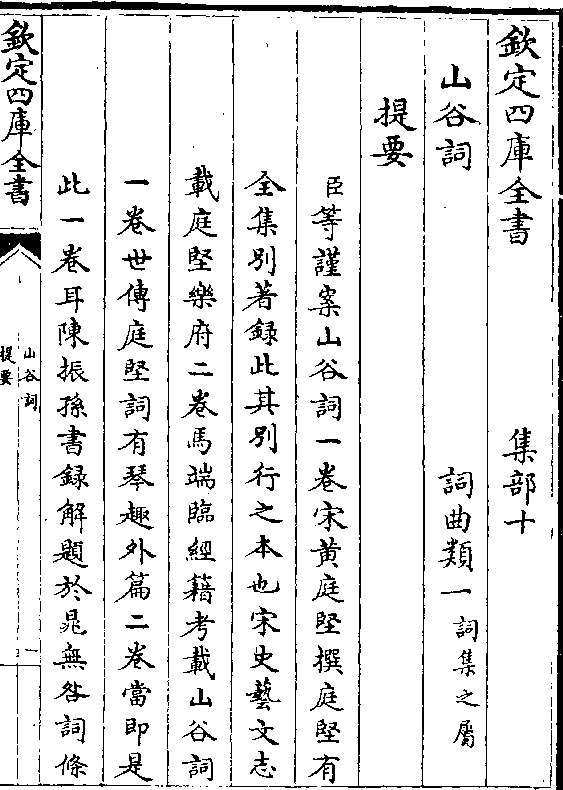 欽定四庫全書 集部十
山谷詞 詞曲類一 詞集之屬
提要
臣等謹案山谷詞一卷宋黃庭堅撰庭堅有
全集别著録此其别行之本也宋史藝文志
載庭堅樂府二卷馬端臨經籍考載山谷詞
一卷世傳庭堅詞有琴趣外篇二卷當即是
此一卷耳陳振孫書録解題於晁無咎詞條
欽定四庫全書
山谷詞
提要
一